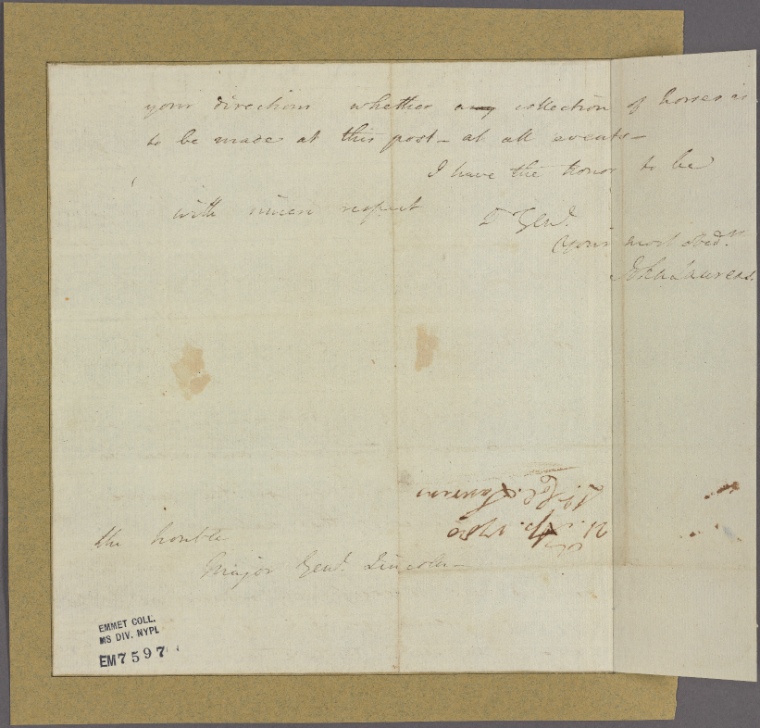 your direction whether any collection of horses is
to be made at this post - at all events -
I have the honor to be
with much respect
D Genl.
Your most obedt.
John Laurens.
Lt. Col. Laurens
21. Ap. 1780
the honble
Major Genl. Lincoln -
EMMET COLL.
MS DIV. NYPL
EM7597